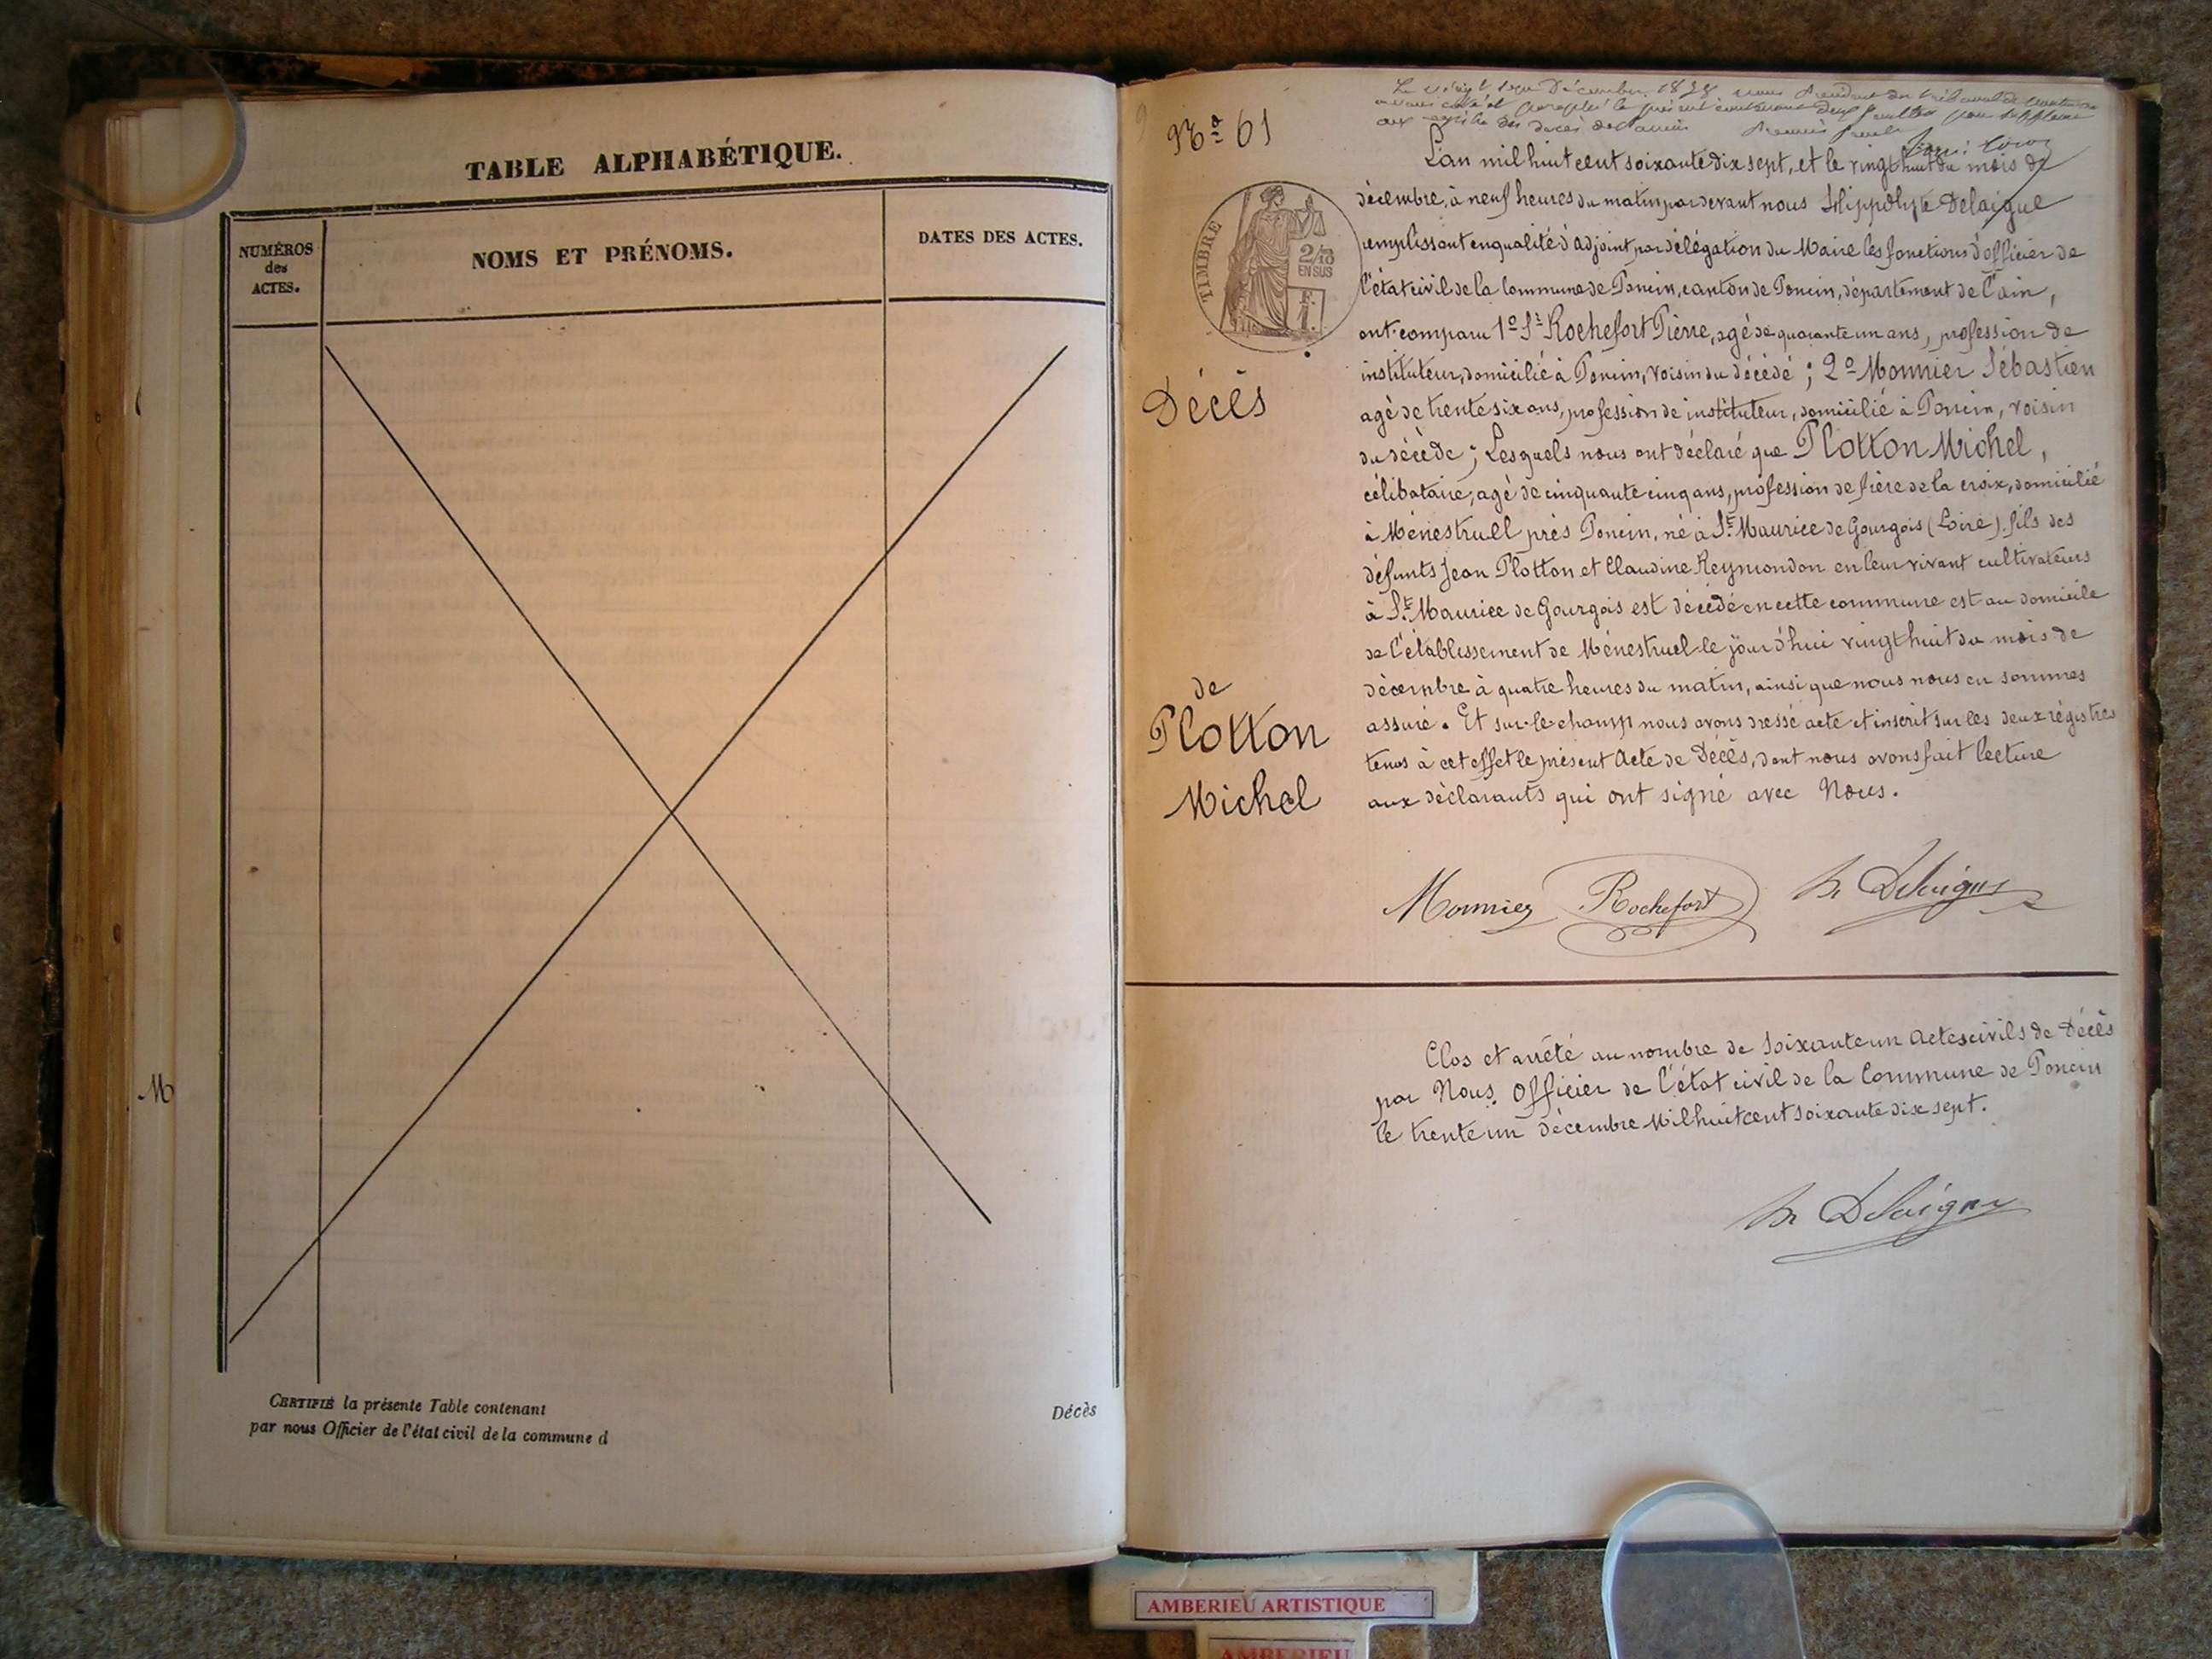 TABLE ALPHABÉTIQUE.
NUMÉROS
des
ACTES.
NOMS ET PRÉNOMS.
DATES DES ACTES.
M
CERTIFIÉ la présente Table contenant
Décès
par nous Officier de l'état civil de la commune d
Nº 61
aux registres des décès
L'an mil huit cent soixante dix sept, et le vingt huit du mois de
décembre, à neuf heures du matin par devant nous Hippolyte Delaigue
remplissant en qualité d'adjoint par délégation du Maire les fonctions d'officier de
l'état civil de la Commune de Poncin, canton de Poncin, département de l'ain,
ont comparu 1º Sr Rochefort Pierre, agé de quarante un ans, profession de
instituteur, domicilié à Poncin, voisin du décédé ; 2º Monnier Sébastien
agé de trente six ans, profession de instituteur, domicilié à Poncin, voisin
du décédé ; Lesquels nous ont déclaré que Plotton Michel,
célibataire, agé de cinquante cinq ans, profession de frère de la croix, domicilié
à Ménestruel près Poncin, né à St Maurice de Gourgois (Loire) fils des
défunts Jean Plotton et Claudine Reymondon en leur vivant cultivateurs
à St Maurice de Gourgois est décédé en cette commune est au domicile
de l'établissement de Ménestruel le jour d'hui vingt huit du mois de
décembre à quatre heures du matin, ainsi que nous nous en sommes
assuré. Et sur-le-champ nous avons dressé acte et inscrit sur les deux régistres
tenus à cet effet le présent Acte de Décès, dont nous avons fait lecture
aux déclarants qui ont signé avec Nous.
TIMBRE
2/10
EN SUS
F.
1
Décès
de
Plotton
Michel
Monnier Rochefort h Delaigue
Clos et arrêté au nombre de soixante un Actes civils de Décès
par Nous. Officier de l'état civil de la Commune de Poncin
le trente un décembre Mil huit cent soixante dix sept.
h Delaigue
AMBERIEU ARTISTIQUE
AMBERIEU